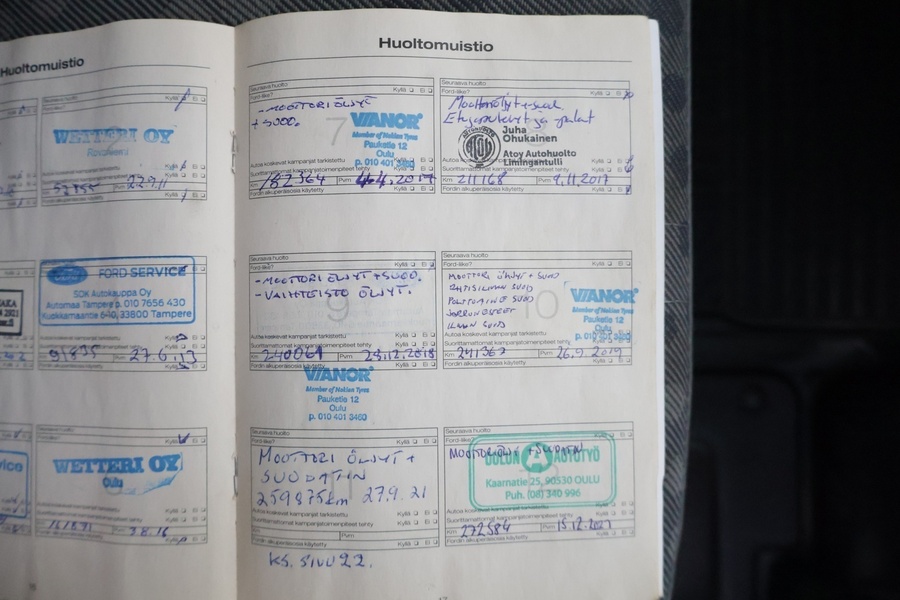 Huoltomuistio
WETTERI OY
Rovaniemi
22.9.11
FORD SERVICE
SOK Autokauppa Oy
Automaa Tampere p. 010 7656 430
Kuokkamaantie 640, 33800 Tampere
91835
27.6.13
WETTERI OY
Oulu
3.8.16
Huoltomuistio
Seuraava huolto
Ford-liike?
Kyllä Ei
- MOOTTORI ÖLJYT
+ SUOD.
7
VIANOR
Member of Nokian Tyres
Pauketie 12
Oulu
p. 010 401 3460
Autoa koskevat kampanjat tarkistettu
Suorittamattomat kampanjatoimenpiteet tehty
Km 182564
Pvm 4.4.2017
Fordin alkuperäisosia käytetty
Kyllä Ei
Seuraava huolto
Ford-liike?
Kyllä Ei
Juha
Ohukainen
Atoy Autohuolto
Limingantulli
Autoa koskevat kampanjat tarkistettu
Suorittamattomat kampanjatoimenpiteet tehty
Km 211168
Pvm 9.11.2017
Fordin alkuperäisosia käytetty
Kyllä Ei
Seuraava huolto
Ford-liike?
Kyllä Ei
- MOOTTORI ÖLJYT + SUOD.
- VAIHTEISTO ÖLJYT.
9
Autoa koskevat kampanjat tarkistettu
Suorittamattomat kampanjatoimenpiteet tehty
Km 240061
Pvm 28.12.2018
Fordin alkuperäisosia käytetty
Kyllä Ei
VIANOR
Member of Nokian Tyres
Pauketie 12
Oulu
p. 010 401 3460
Seuraava huolto
Ford-liike?
Kyllä Ei
MOOTTORI ÖLJYT + SUOD
RAITISILMAN SUOD
POLTTOAINE SUOD
JARRUNESTEET
ILMAN SUOD
10
VIANOR
Member of Nokian Tyres
Pauketie 12
Oulu
p. 010 401 3460
Autoa koskevat kampanjat tarkistettu
Suorittamattomat kampanjatoimenpiteet tehty
Km 241367
Pvm 26.9.2019
Fordin alkuperäisosia käytetty
Kyllä Ei
Seuraava huolto
Ford-liike?
Kyllä Ei
MOOTTORI ÖLJYT +
SUODATIN
259875km 27.9.21
Autoa koskevat kampanjat tarkistettu
Suorittamattomat kampanjatoimenpiteet tehty
Km
Pvm
Fordin alkuperäisosia käytetty
Kyllä Ei
KS. SIVU 22.
Seuraava huolto
Ford-liike?
Kyllä Ei
MOOTTORIÖLJY + SUODATIN
OULUN AUTOTYÖ
Kaarnatie 25, 90530 OULU
Puh. (08) 340 996
Autoa koskevat kampanjat tarkistettu
Suorittamattomat kampanjatoimenpiteet tehty
Km 272584
Pvm 15.12.2021
Fordin alkuperäisosia käytetty
Kyllä Ei